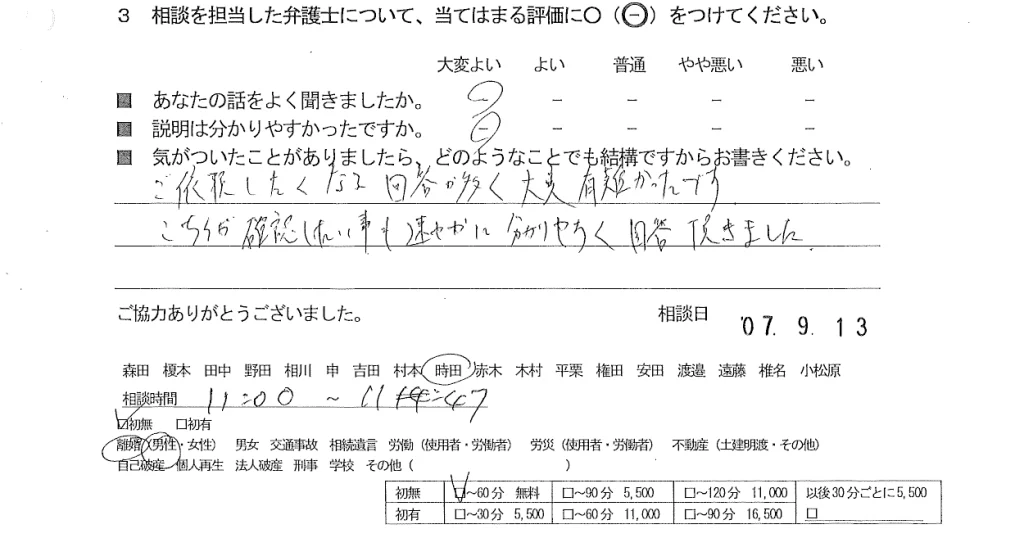 3 相談を担当した弁護士について、当てはまる評価に○（㊀）をつけてください。
大変よい よい 普通 やや悪い 悪い
■ あなたの話をよく聞きましたか。 － － － － －
■ 説明は分かりやすかったですか。 － － － － －
■ 気がついたことがありましたら、どのようなことでも結構ですからお書きください。
ご依頼したくなる 回答が多く 大変 有難かったです
こちらが 確認したい事も 速やかに 分かりやすく 回答 頂きました
ご協力ありがとうございました。 相談日 '07. 9. 13
森田 榎本 田中 野田 相川 申 吉田 村本 時田 赤木 木村 平栗 権田 安田 渡邉 遠藤 椎名 小松原
相談時間 11:00 ～ 11:47
☑初無 □初有
離婚（男性・女性） 男女 交通事故 相続遺言 労働（使用者・労働者） 労災（使用者・労働者） 不動産（土建明渡・その他）
自己破産 個人再生 法人破産 刑事 学校 その他（ ）
初無 ☑～60分 無料 □～90分 5,500 □～120分 11,000 以後30分ごとに5,500
初有 □～30分 5,500 □～60分 11,000 □～90分 16,500 □